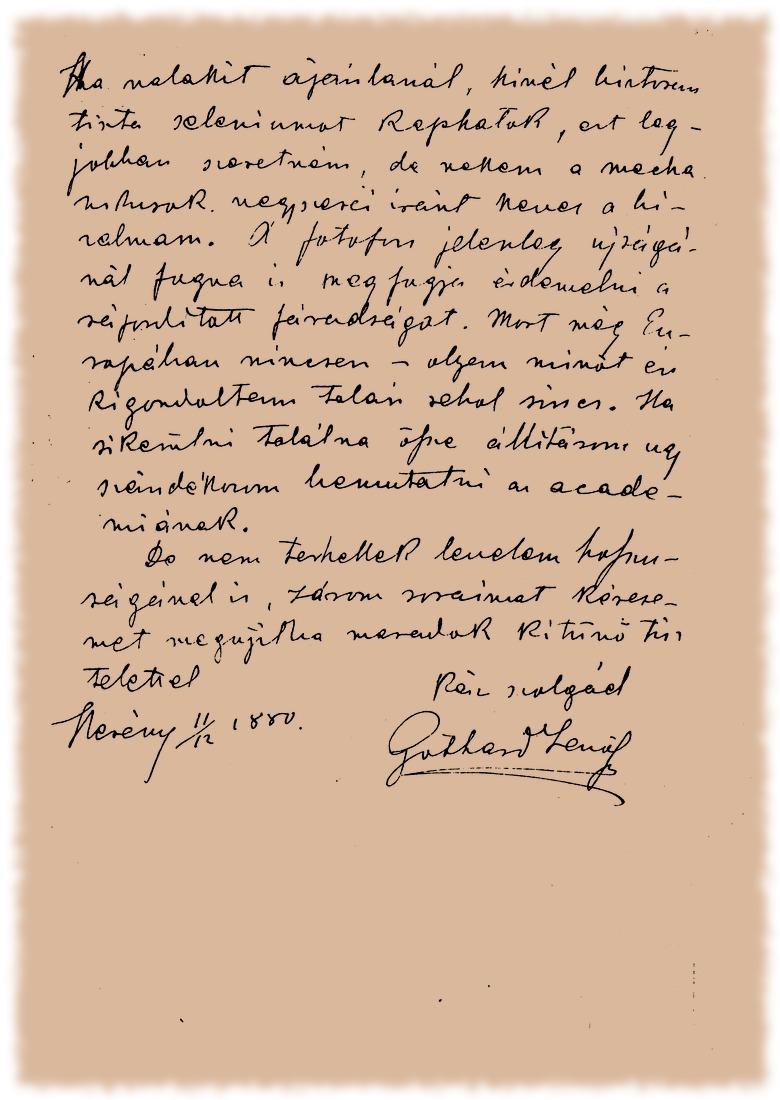 Ha valakit ajánlanál, kinél biztosan
tiszta seleniumot kaphatok, ezt leg-
jobban szeretném, de nekem a mecha
nikusok vegyszerei iránt kevés a bi-
zalmam. A fotofon jelenleg ujságá-
nál fogva is meg fogja érdemelni a
ráforditott fáradságot. Most még Eu-
ropában nincsen – olyan minőt én
kigondoltam talán sehol sincs. Ha
sikerülni találna össze állitásom ugy
szándékozom bemutatni az acade-
miának.
De nem terhellek levelem hosszu-
ságánál is, zárom soraimat kérése-
met megujitva maradok kitünő tisz
telettel
kész szolgád
Herény 11/12 1880.
Gothard Jenő